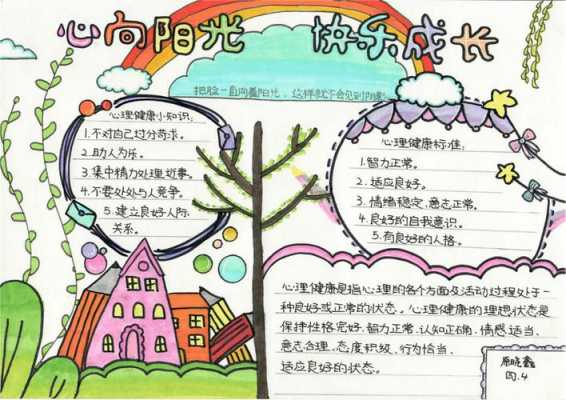 心向阳光 快乐成长
把脸一直向着阳光，这样就不会见到阴影
心理健康小知识：
1.不对自己过分苛求。
2.助人为乐。
3.集中精力处理好事。
4.不要处处与人竞争。
5.建立良好人际
关系。
心理健康标准：
1.智力正常。
2.适应良好。
3.情绪稳定、意志正常。
4.良好的自我意识。
5.有良好的人格。
心理健康是指心理的各个方面及活动过程处于一
种良好或正常的状态。心理健康的理想状态是
保持性格完好、智力正常、认知正确、情感适当、
意志合理、态度积极、行为恰当、
适应良好的状态。
原晓鑫
四.4